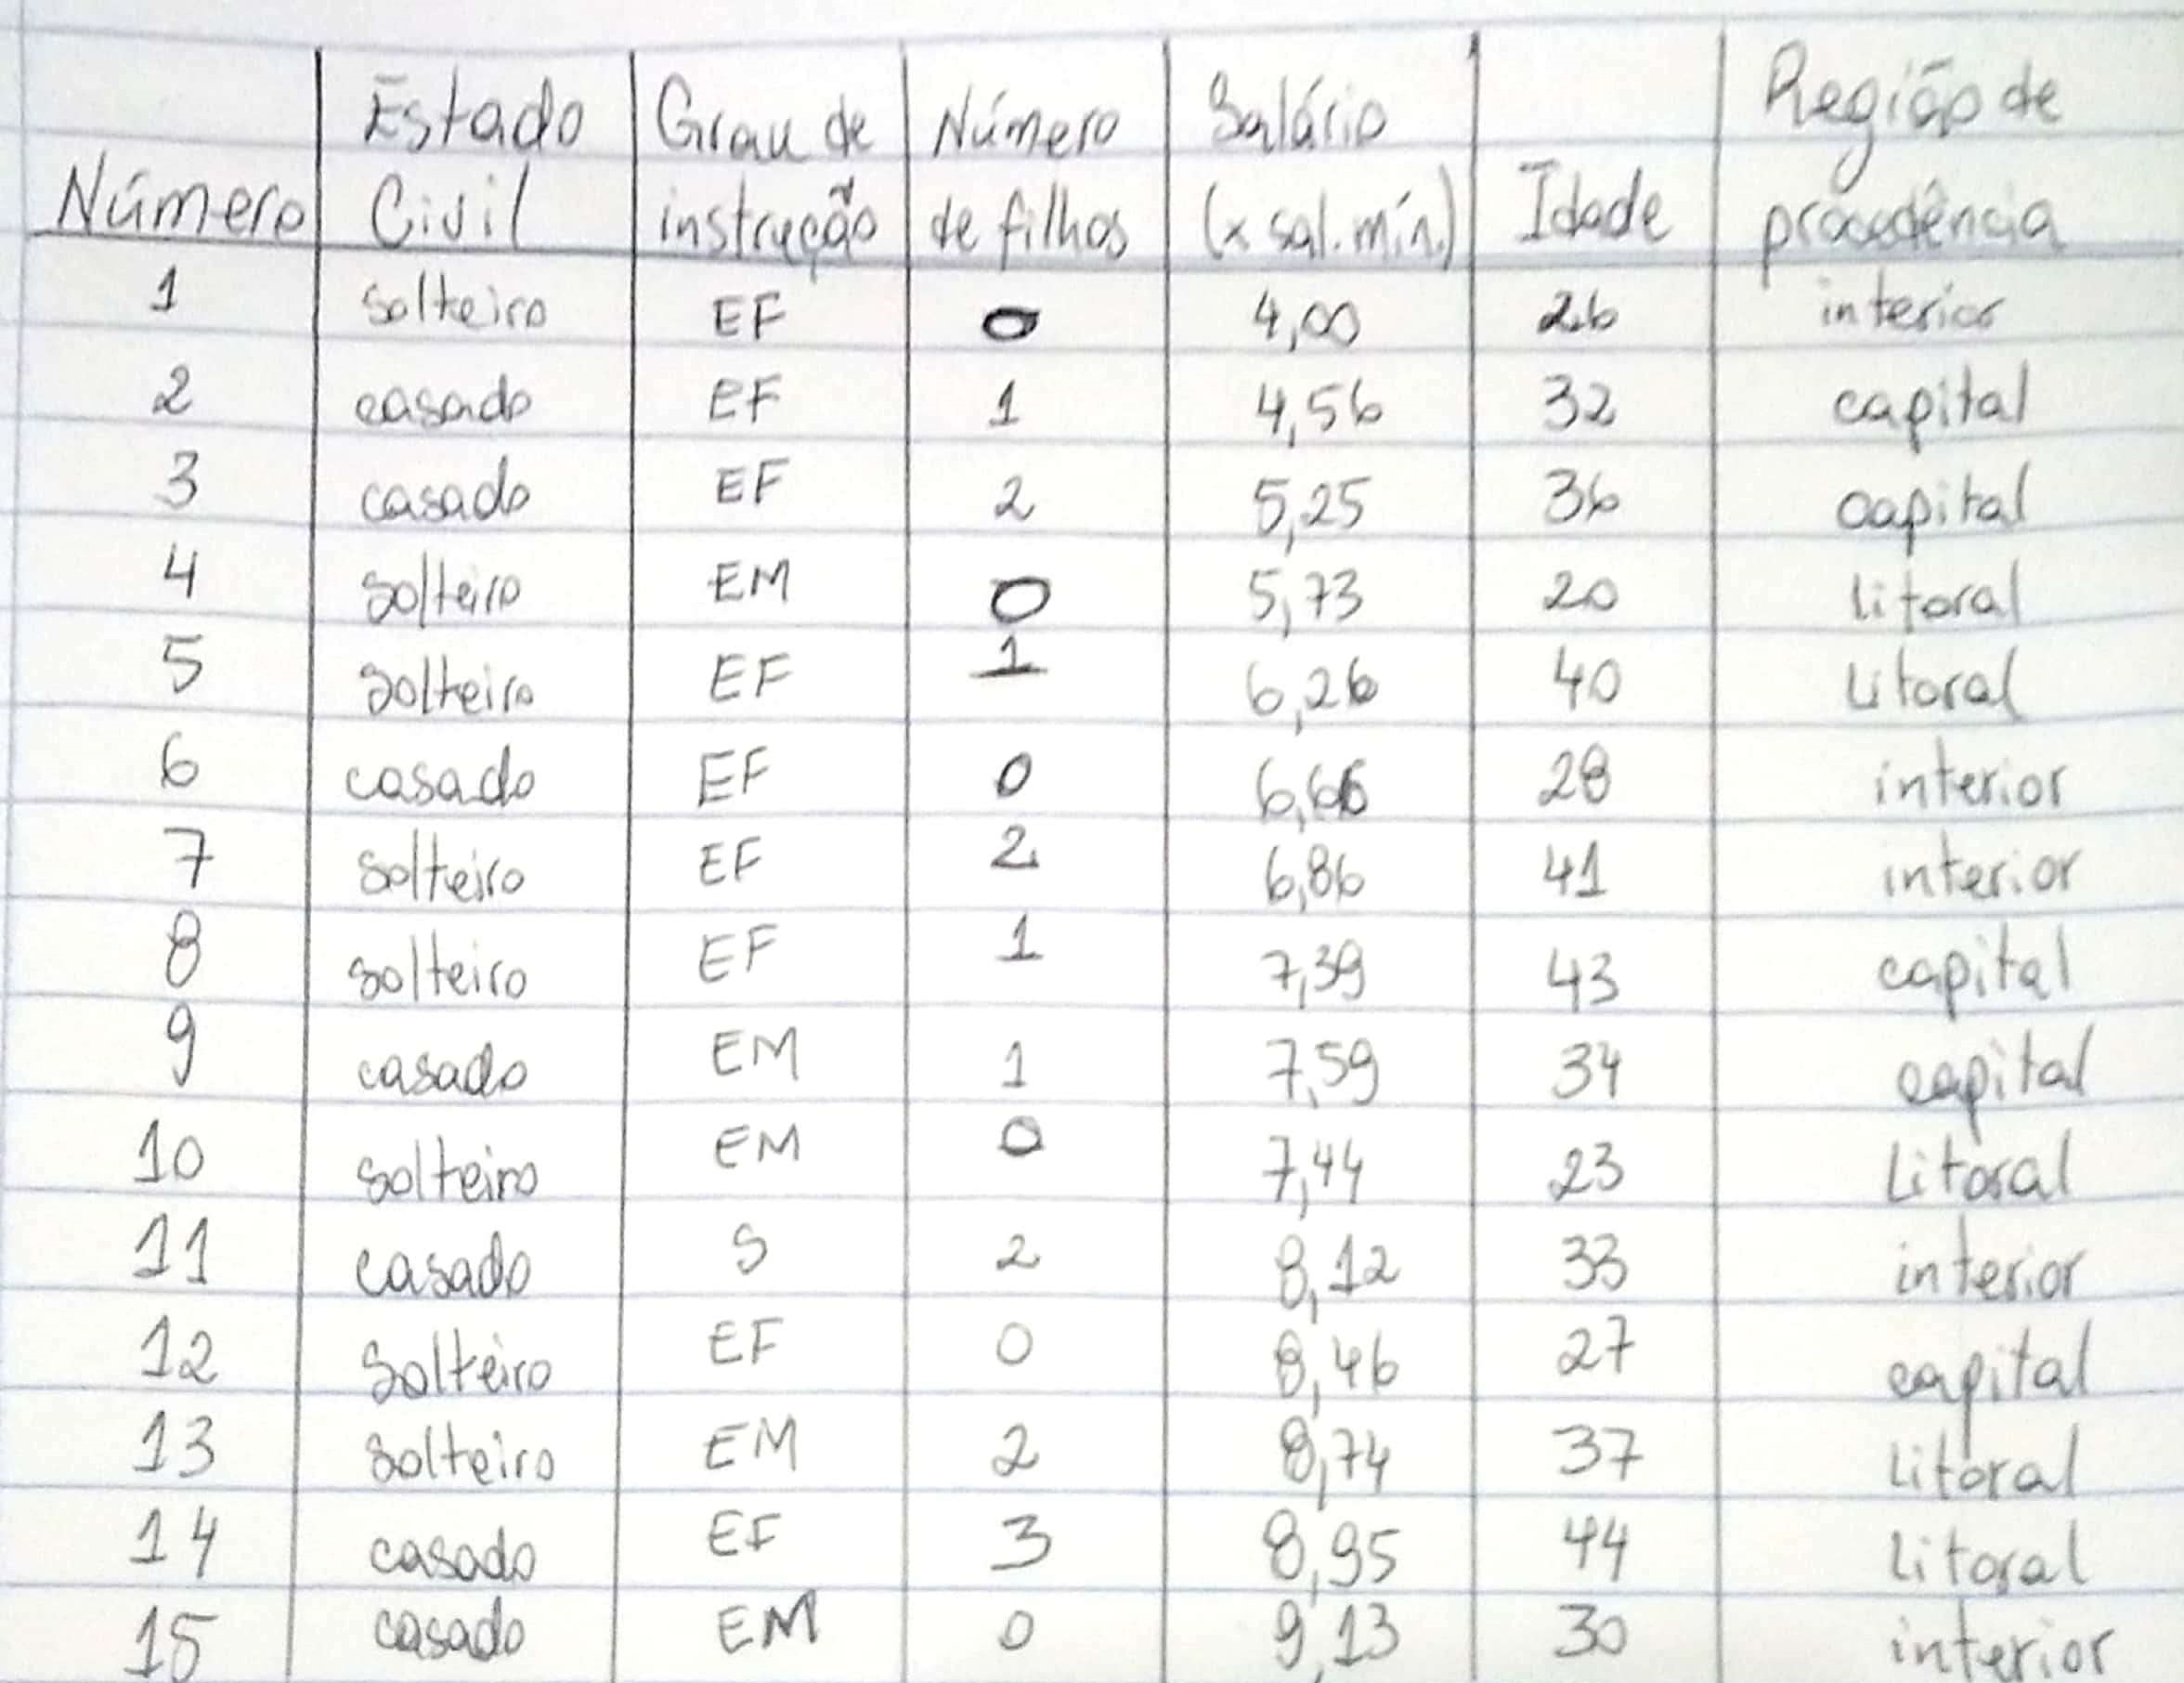 Número Estado Civil Grau de instrução Número de filhos Salário (x sal. mín.) Idade Região de procedência
1 solteiro EF 0 4,00 26 interior
2 casado EF 1 4,56 32 capital
3 casado EF 2 5,25 36 capital
4 solteiro EM 0 5,73 20 litoral
5 solteiro EF 1 6,26 40 litoral
6 casado EF 0 6,66 28 interior
7 solteiro EF 2 6,86 41 interior
8 solteiro EF 1 7,39 43 capital
9 casado EM 1 7,59 34 capital
10 solteiro EM 0 7,44 23 Litoral
11 casado S 2 8,12 33 interior
12 Solteiro EF 0 8,46 27 capital
13 solteiro EM 2 8,74 37 litoral
14 casado EF 3 8,95 44 litoral
15 casado EM 0 9,13 30 interior